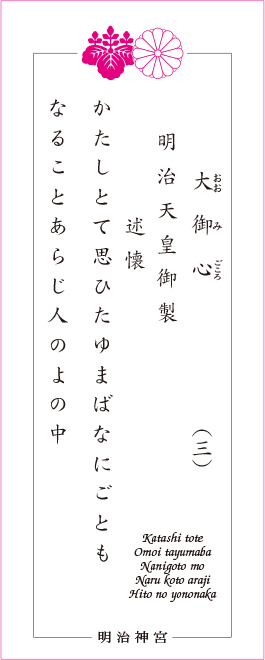 大御心
おおみごころ
(三)
明治天皇御製
述懐
かたしとて思ひたゆまばなにごとも
なることあらじ人のよの中
Katashi tote
Omoi tayumaba
Nanigoto mo
Naru koto araji
Hito no yononaka
明治神宮